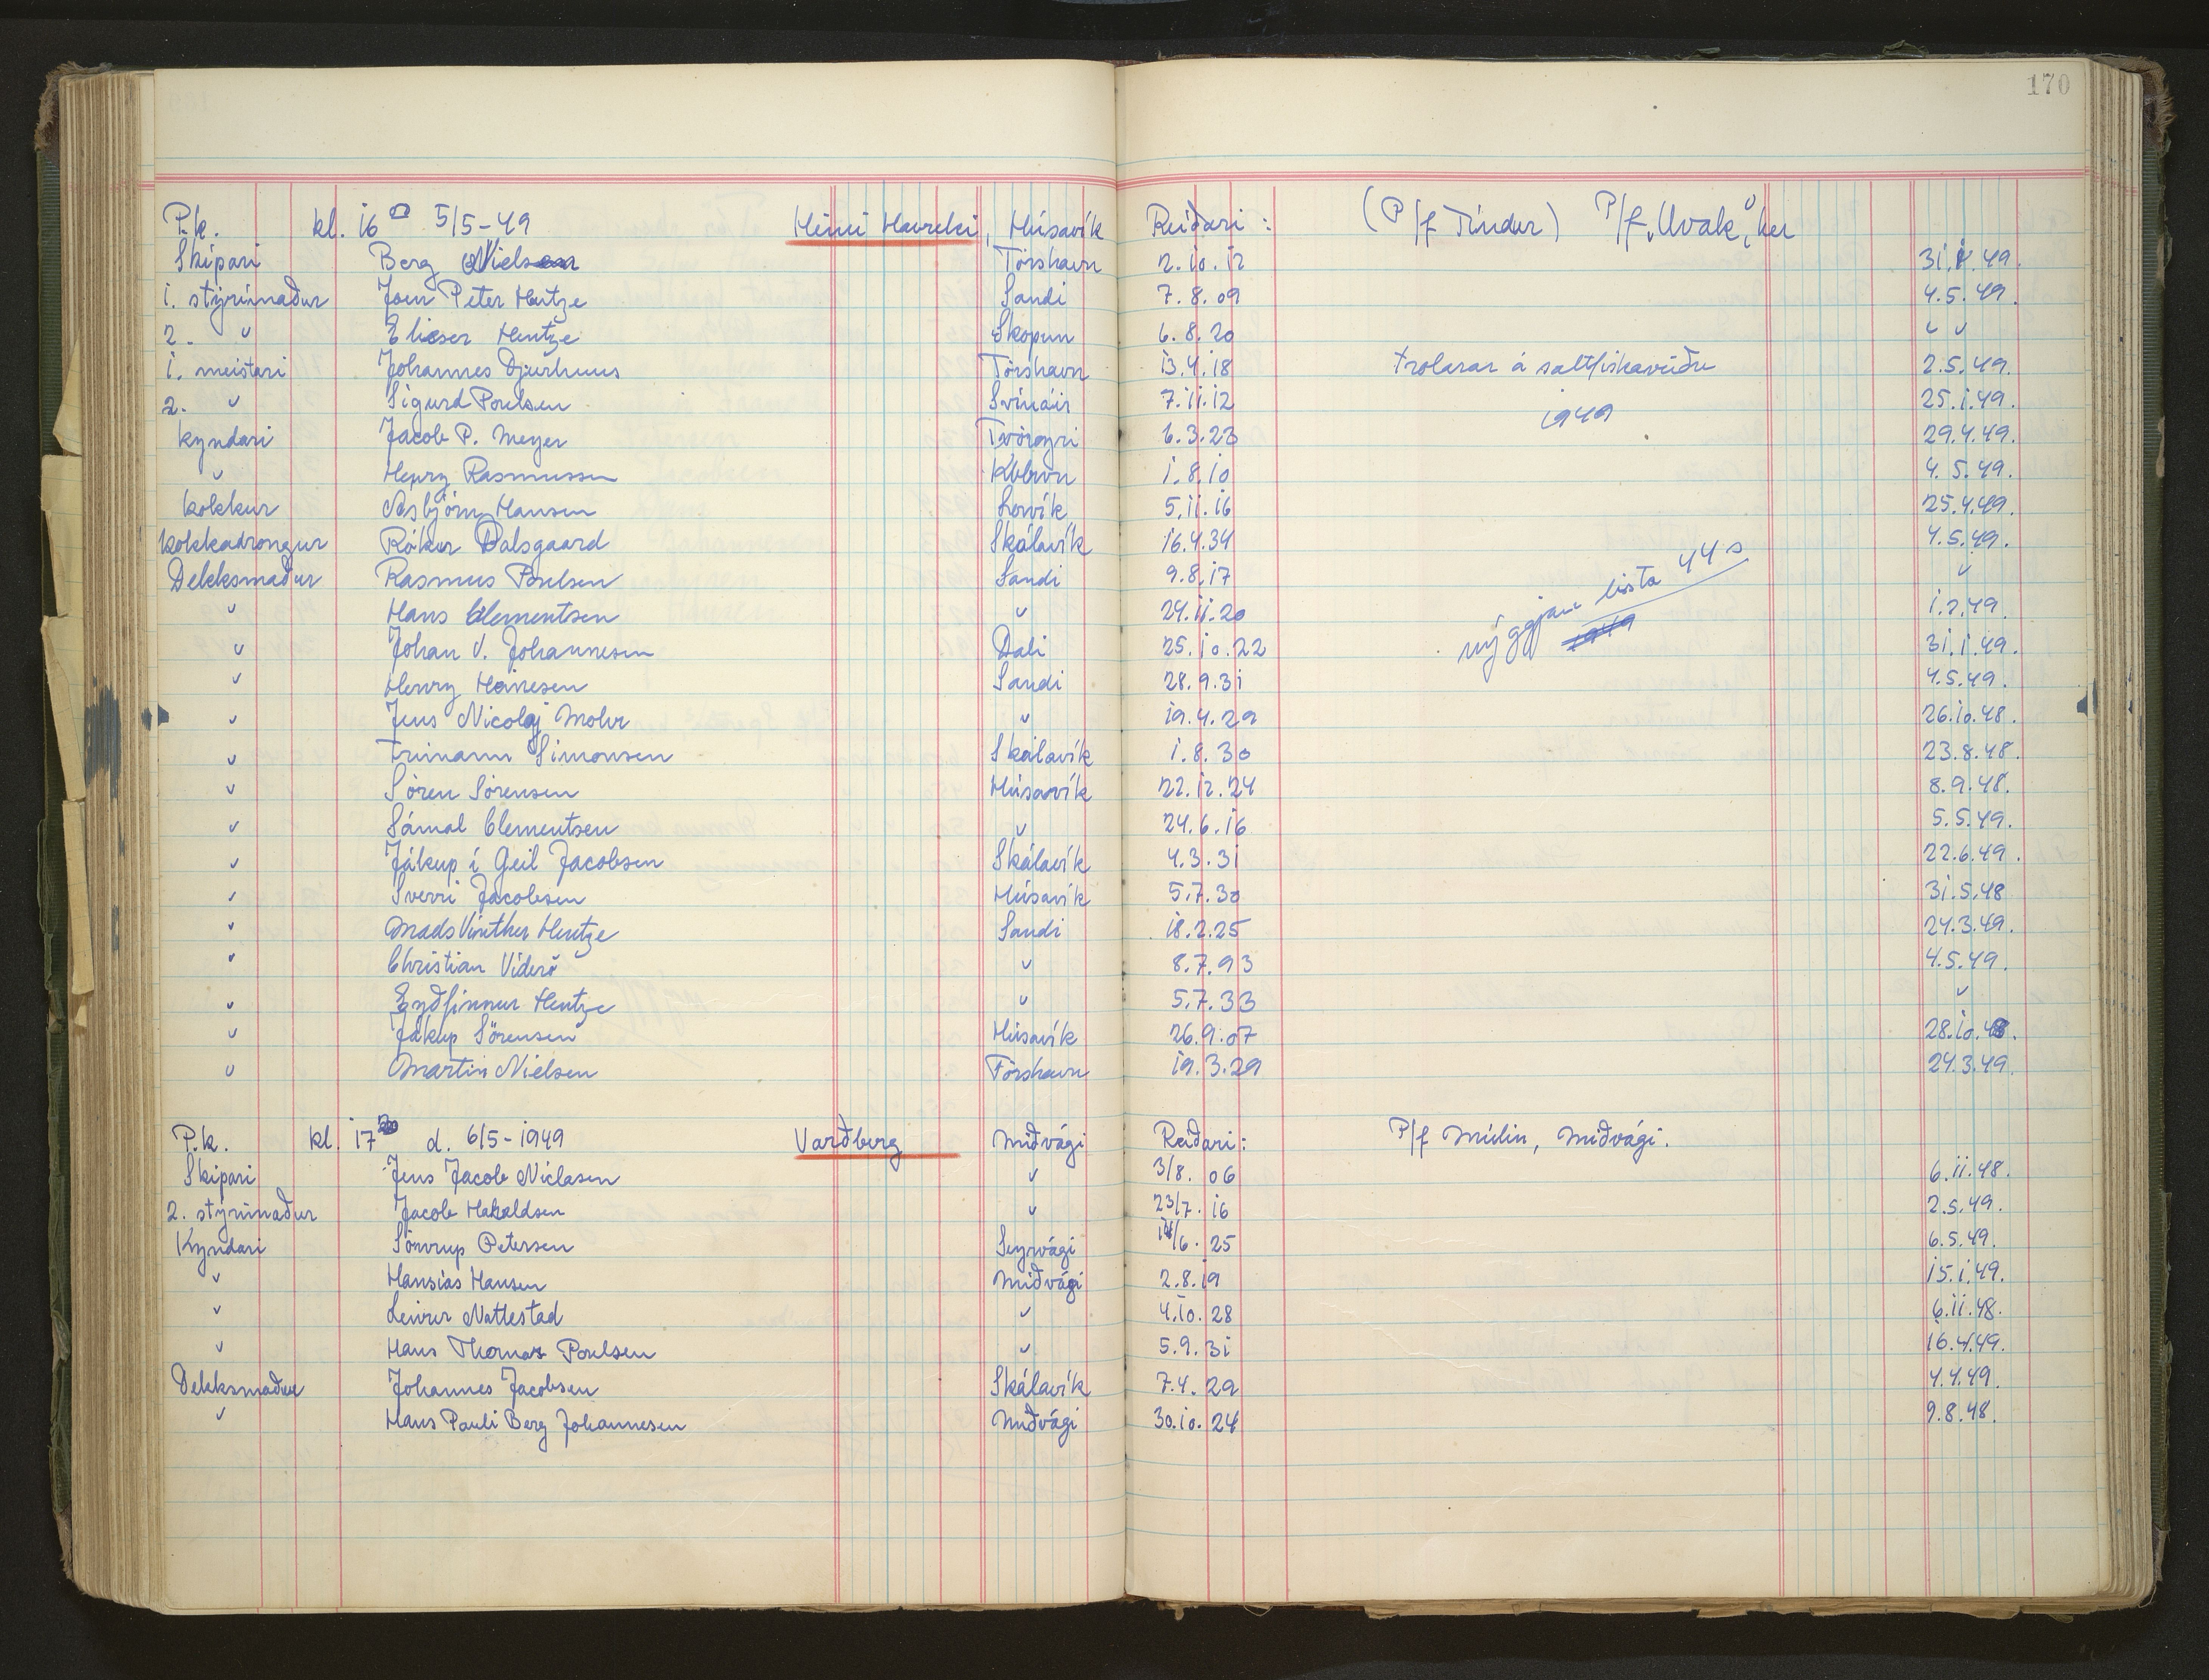 170
P.k. kl. 16 00 5/5-49 Heini Havreki, Húsavík Reiðari: (P/f Tindur) P/f „Uvak“, her
Skipari Berg Nielsen Tórshavn 2.10.12 31.1.49.
1. stýrimaður Joen Peter Hentze Sandi 7.8.09 4.5.49.
2. " Elieser Hentze Skopun 6.8.20 " "
1. meistari Johannes Djurhuus Tórshavn 13.4.18 trolarar á saltfiskaveiðu 2.5.49.
2. " Sigurd Poulsen Svínáir 7.11.12 25.1.49.
1949
kyndari Jacob P. Meyer Tvöroyri 6.3.23 29.4.49.
" Henry Rasmussen Kbhvn 1.8.10 4.5.49.
kokkur Asbjörn Hansen Lorvík 5.11.16 25.4.49.
kokkadrongur Rókur Dalsgaard Skálavík 16.4.34 4.5.49.
Dekksmaður Rasmus Poulsen Sandi 9.8.17 "
nýggjan lista 44 s
1949
" Hans Clementsen " 24.11.20 1.2.49.
" Johan V. Johannesen Dali 25.10.22 31.1.49.
" Henry Heinesen Sandi 28.9.31 4.5.49.
" Jens Nicolaj Mohr " 19.4.29 26.10.48.
" Trimann Simonsen Skálavík 1.8.30 23.8.48.
" Sören Sörensen Húsavík 22.12.24 8.9.48.
" Sámal Clementsen " 24.6.16 5.5.49.
" Jákup í Geil Jacobsen Skálavík 4.3.31 22.6.49.
" Sverri Jacobsen Húsavík 5.7.30 31.5.48
" Mads Vinther Hentze Sandi 18.2.25 24.3.49.
" Christian Viderö " 8.7.93 4.5.49.
" Eyðfinnur Hentze " 5.7.33 "
" Jákup Sörensen Húsavík 26.9.07 28.10.48.
" Martin Nielsen Tórshavn 19.3.29 24.3.49.
P.k. kl. 17 30 d. 6/5-1949 Varðberg Miðvági Reiðari: P/f Múlin, Miðvági.
Skipari Jens Jacob Niclasen " 3/8. 06 6.11.48.
2. stýrimaður Jacob Haraldsen " 23/7. 16 2.5.49.
Kyndari Sönrup Petersen Seyrvági 14/6. 25 6.5.49.
" Hansias Hansen Miðvági 2.8.19 15.1.49.
" Leivur Nattestad " 4.10.28 6.11.48.
" Hans Thomas Poulsen " 5.9.31 16.4.49.
Dekksmaður Johannes Jacobsen Skálavík 7.4.29 4.4.49.
" Hans Pauli Berg Johannesen Miðvági 30.10.24 9.8.48.